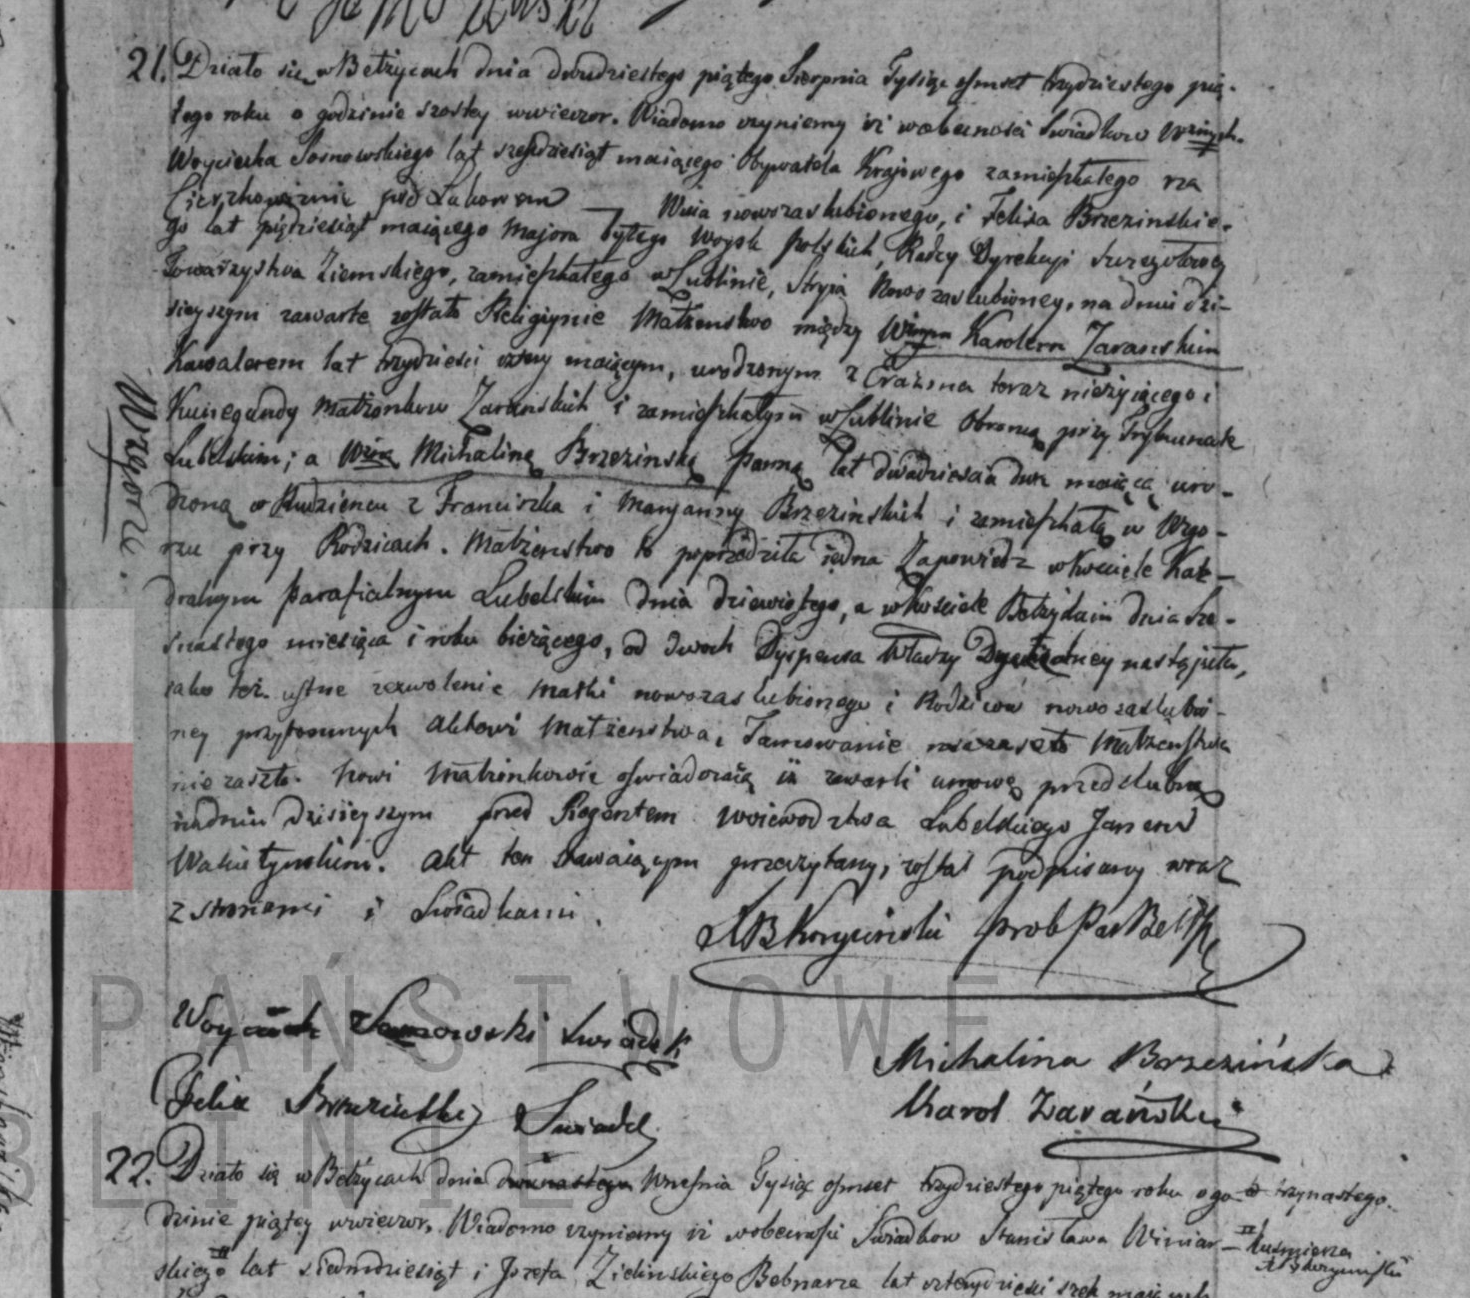 21. Działo się w Bełżycach dnia dwudziestego piątego Sierpnia Tysiąc ośmset trzydziestego pią-
tego roku o godzinie szostey wwieczor. Wiadomo czyniemy iż wobecności Swiadkow Wznych
Woyciecha Sosnowskiego lat sześdziesiąt maiącego Obywatela Kraiowego zamieszkałego na
pod Łukowem — Wuia nowozaslubionego, i Felixa Brzezinskie-
go lat pięдziesiąt maiącego Majora byłego Woysk Polskich, Radcy Dyrekcyi Szczegułowey
Towarzystwa Ziemskiego, zamieszkałego w Lublinie, Stryia Nowozaslubioney, na dniu dzi-
sieyszym zawarte zostało Religiynie Małżenstwo między Wznym Karolem Zaranskim
Kawalerem lat trzydzieści cztery maiącym, urodzonym z Erazma teraz nieżyiącego i
Kunegundy Małżonkow Zaranskich i zamieszkałym w Lublinie Obroncą przy Trybunale
Lubelskim; a Wzną Michaliną Brzezinską Panną lat dwadzieścia dwa maiącą uro-
dzoną w z Franciszka i Maryanny Brzezinskich i zamieszkałą w Wzgo-
rzu przy Rodzicach. Małżenstwo to poprzedziła iedna Zapowiedz w Kościele Kate-
dralnym Parafialnym Lubelskim dnia dziewiątego, a w Kościele Bełzyckim dnia Sze-
snastego miesiąca i roku bieżącego, od dwoch Dyspensa Władzy nastąpiła,
iako też ustne zezwolenie Matki nowozaslubionego i Rodzicow nowozaslubio-
ney przytomnych Aktowi Małżenstwa. Tamowanie Małżenstwa
nie zaszło. Nowi Małżonkowie oświadczaią iż zawarli umowę przedslubną
wdniu dzisieyszym przed Regentem Woiewodztwa Lubelskiego Janem
Akt ten stawaiącym przeczytany, został podpisany wraz
z stronami i Swiadkami.
prob Par Bełżc
Woyciech Sosnowski Swiadek
Michalina Brzezińska
Felix Brzezinski Swiadek
Karol Zarański
Wzgorze.
22. Działo się w Bełżycach dnia dwunastego Wrzesnia Tysiąc ośmset trzydziestego piątego roku o go- trzynastego.
dzinie piątey wwieczor. Wiadomo czyniemy iż wobecności Swiadkow Stanisława Winiar- Kusmierza
skiego lat siedmdziesiąt i Jozefa Zielinskiego Bednarza lat czterdzieści szesc maiących